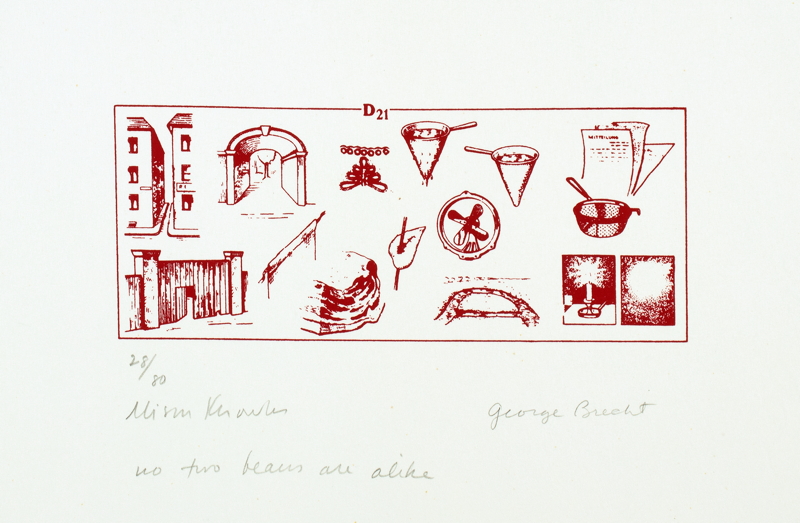 D21
MITTEILUNG
E
28/80
Alison Knowles
George Brecht
no two beans are alike